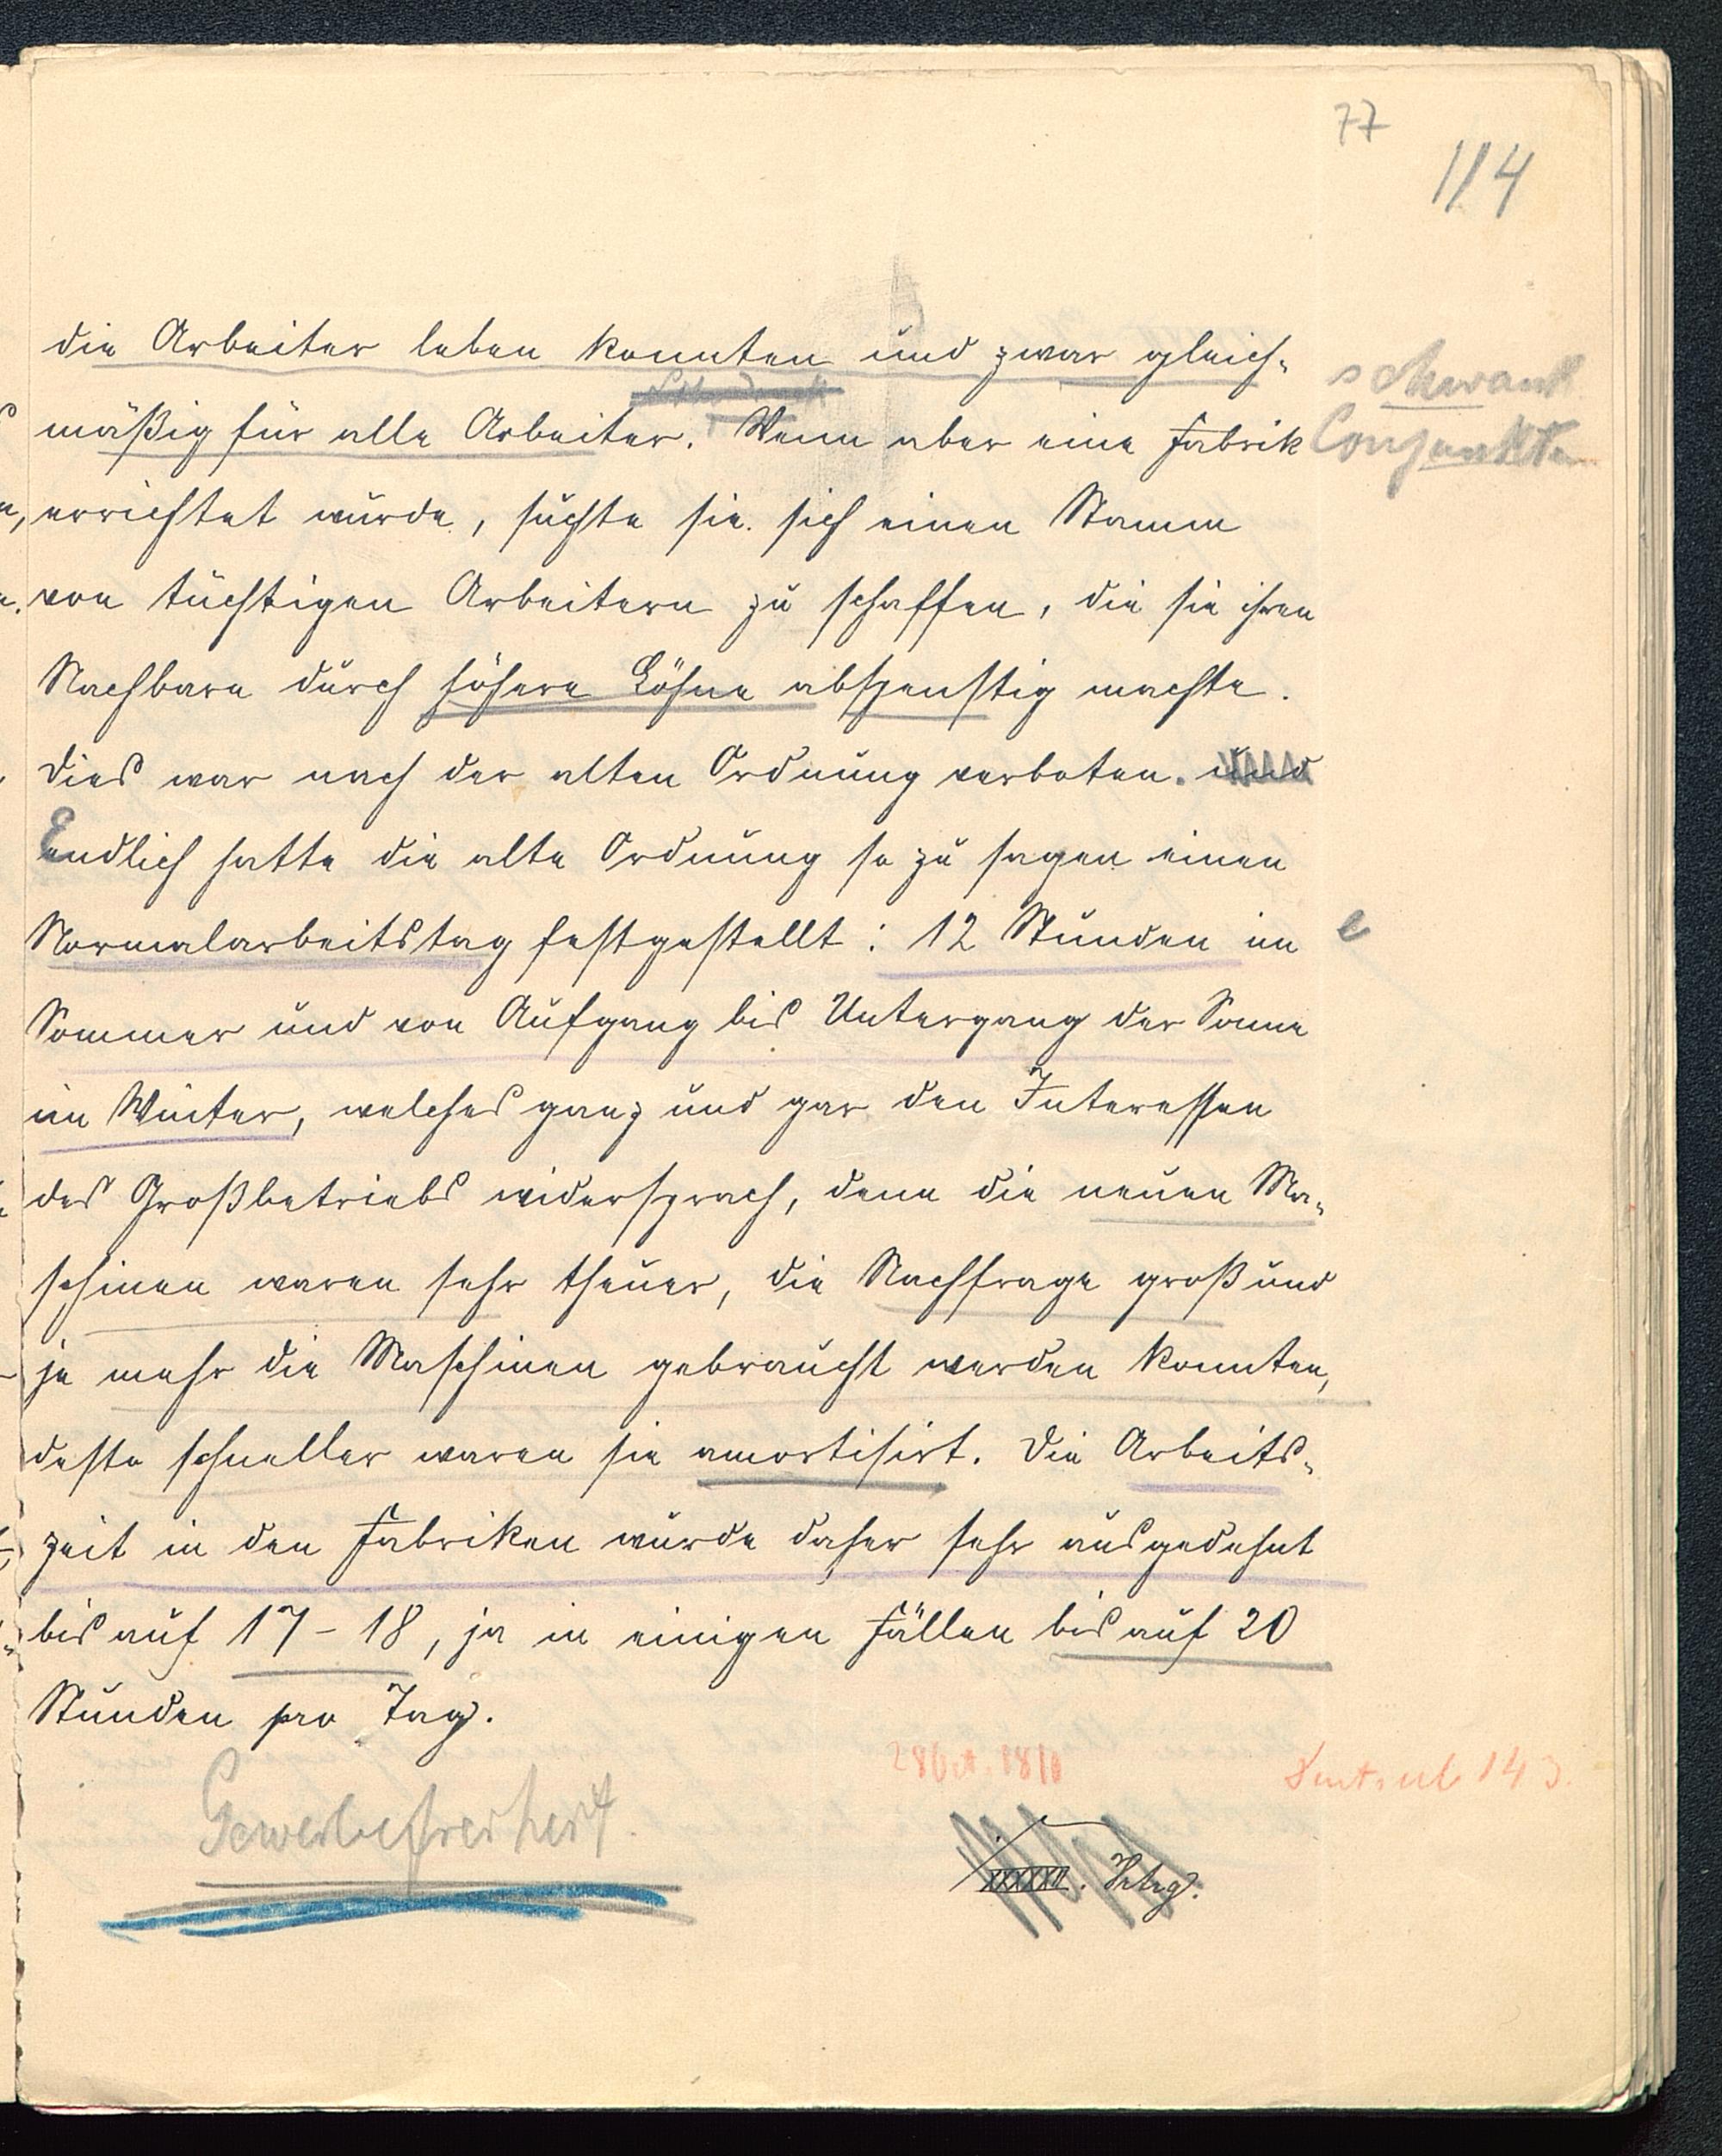 77
114
die Arbeiter leben konnten und zwar gleich-
mäßig für alle Arbeiter. Wenn aber eine Fabrik
errichtet wurde, suchte sie sich einen Stamm
von tüchtigen Arbeitern zu schaffen, die sie ihren
Nachbarn durch höhere Löhne abspenstig machte.
Dies war nach der alten Ordnung verboten. und
Endlich hatte die alte Ordnung so zu sagen einen
Normalarbeitstag festgestellt: 12 Stunden im
e
Sommer und von Aufgang bis Untergang der Sonne
im Winter, welches ganz und gar den Interessen
des Großbetriebs widersprach, denn die neuen Ma-
schinen waren sehr theuer, die Nachfrage groß und
je mehr die Maschinen gebraucht werden konnten,
desto schneller waren sie amortisirt. Die Arbeits-
zeit in den Fabriken wurde daher sehr ausgedehnt
bis auf 17-18, ja in einigen Fällen bis auf 20
Stunden pro Tag.
Gewerbefreiheit.